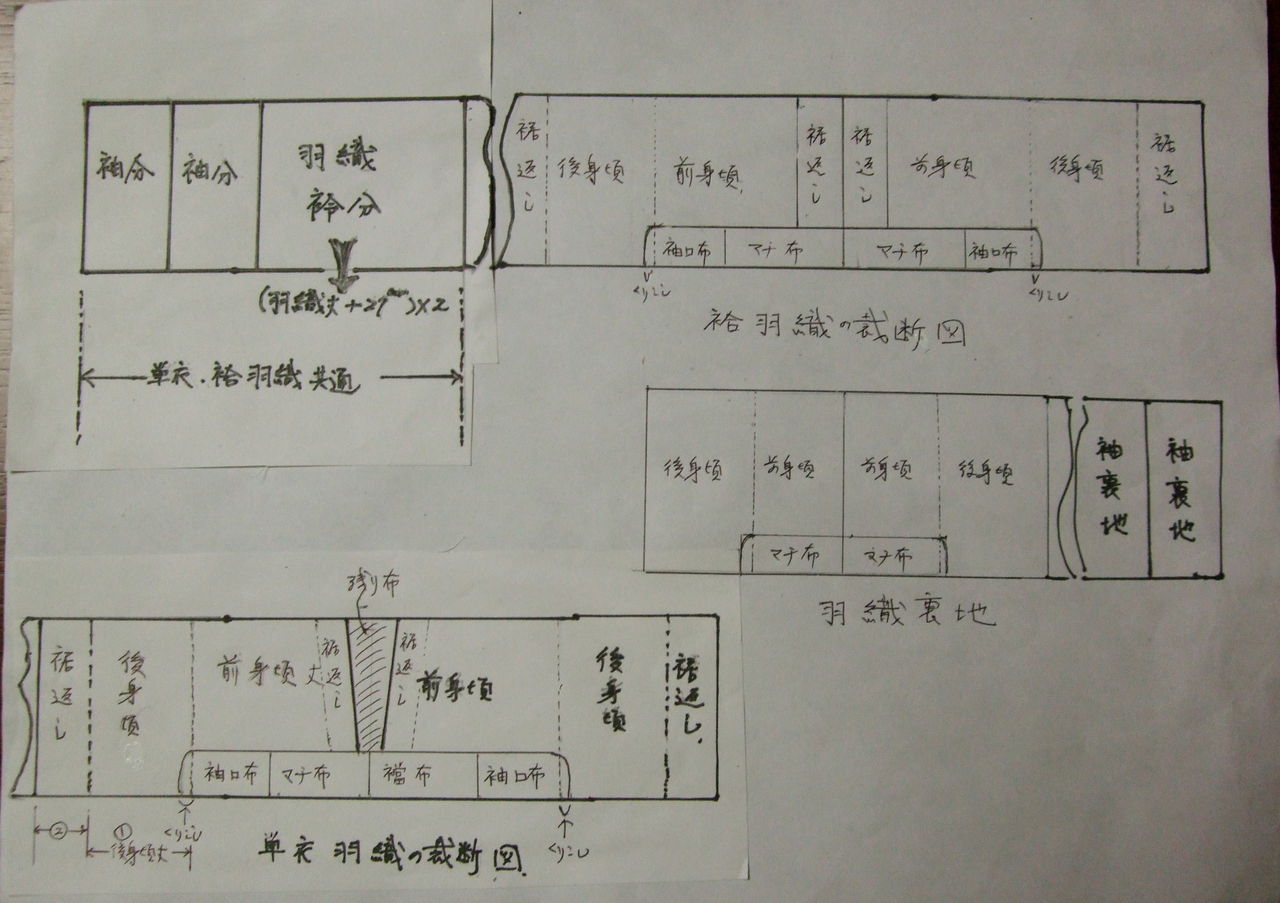 袖分
袖分
羽織
衿分
(羽織丈+27cm)×2
単衣.袷羽織共通
裾返し
後身頃
前身頃
裾返し
裾返し
前身頃
後身頃
裾返し
袖口布
マチ布
マチ布
袖口布
くりこし
くりこし
袷羽織の裁断図
後身頃
前身頃
前身頃
後身頃
袖裏地
袖裏地
マチ布
マチ布
羽織裏地
残り布
裾返し
後身頃
前身頃丈
裾返し
裾返し
前身頃
後身頃
裾返し
袖口布
マチ布
襠布
袖口布
②
①
後身頃丈
くりこし
くりこし
単衣羽織の裁断図